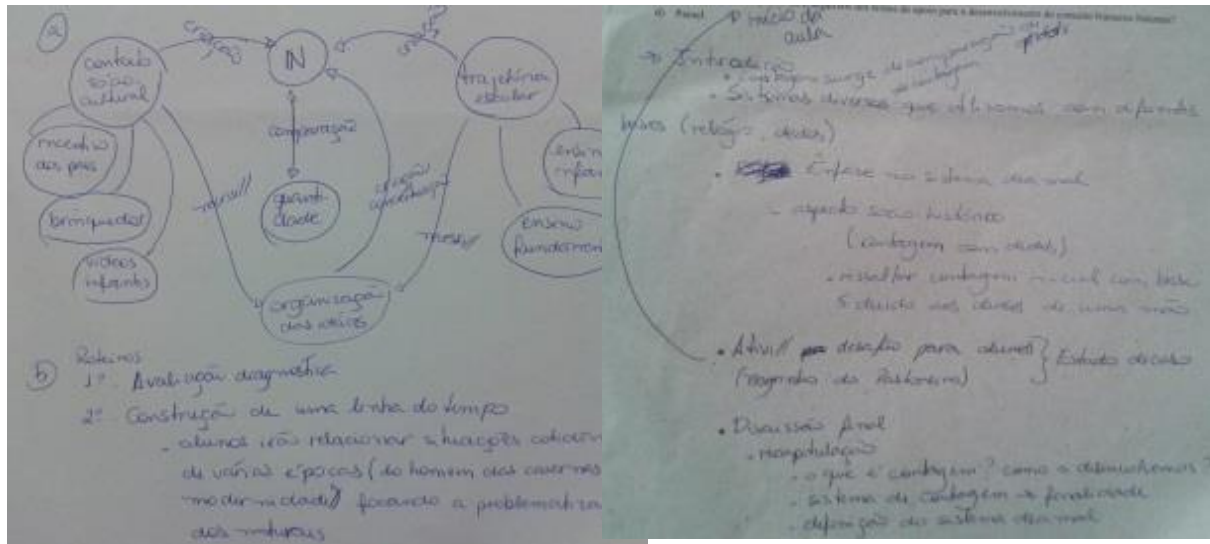 a
contexto
sócio
cultural
criação
IN
trajetória
escolar
incentivo
dos pais
comparação
ensin
infan
brinquedos
quanti-
dade
ensino
fundamen
vídeos
infantis
organização
das ideias
b Roteiros
1º Avaliação diagnóstica
2º Construção de uma linha do tempo
- alunos irão relacionar situações cotidian
de várias épocas (do homem das cavernas
modernidade) focando a problematiza
dos naturais
início da
aula
→ Introdução
• Contagem surge de comparação
• Sistemas diversos que utilizamos com diferentes
bases (relógio, dedos)
• Ênfase no sistema decimal
- aspecto sócio-histórico
(contagem com dedos)
• ressaltar contagem inicial com base
5 devido aos dedos de uma mão
• Ativ// desafio para alunos } Estudo de caso
• Discussão final
- recapitulação
- o que é contagem? como a desenvolvemos?
- sistema de contagem → finalidade
- definição do sistema decimal